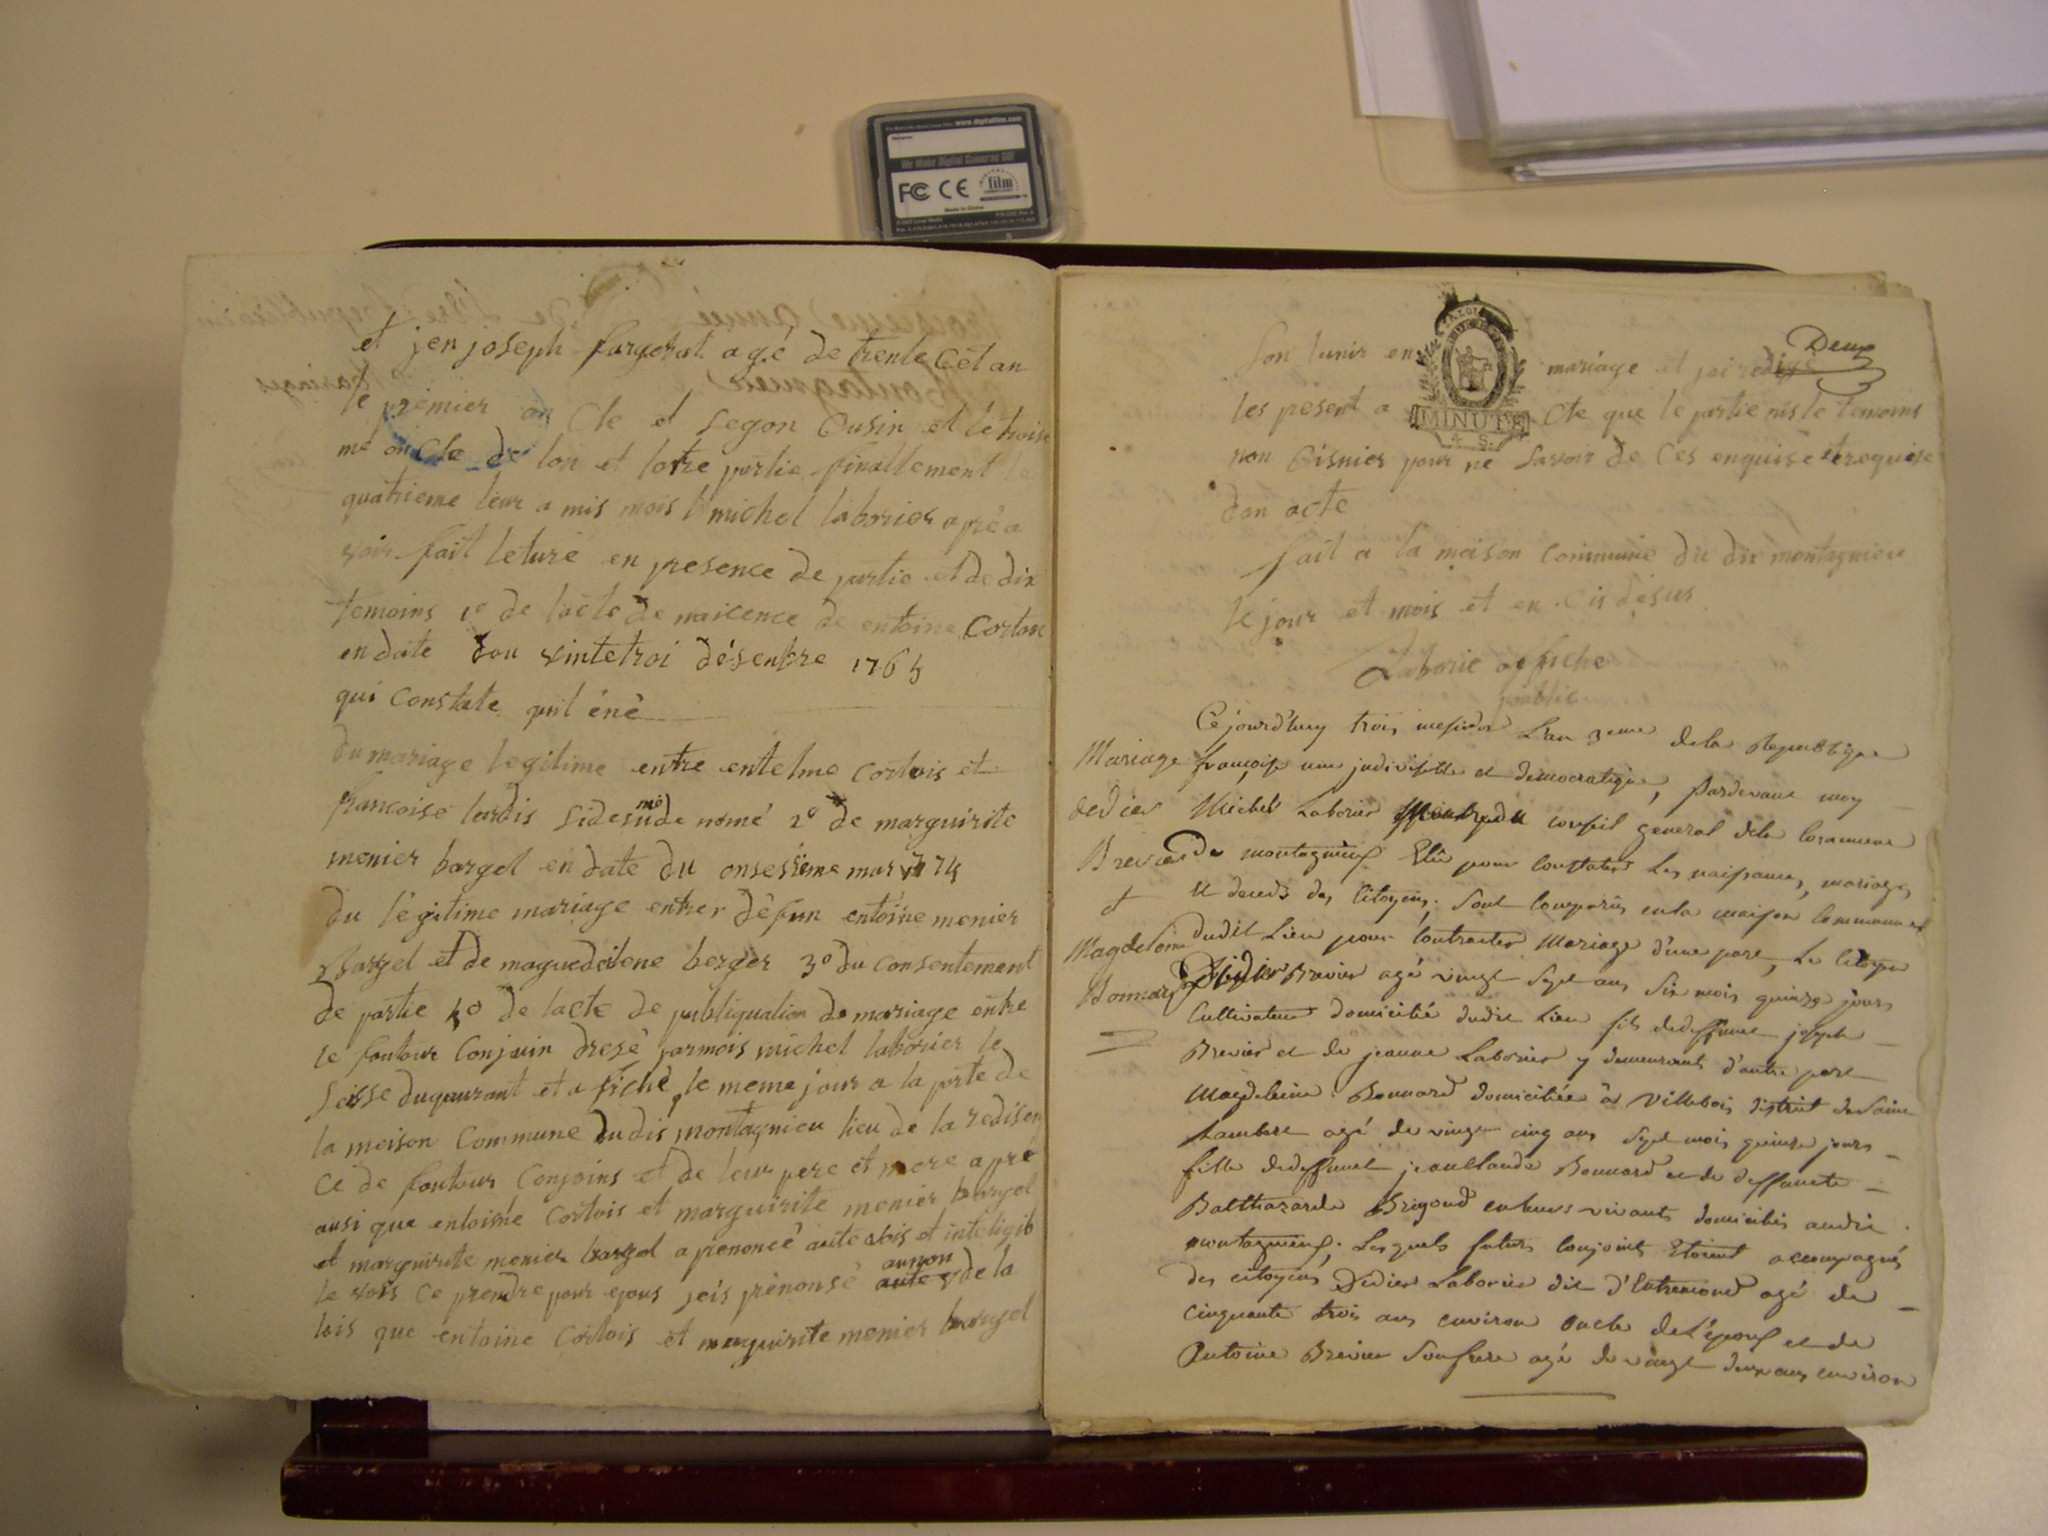 www.digitalfilm.com
We Make Digital Cameras GO!
FC CE
film
Made in China
et jen joseph fargerat agé de trente Cet an
le premier on Cle et segon Cusin et le troise
me on Cle de lon et lotre partie finallement le
quatrieme leur a mis mois michel laborier apré a
voir fait leture en presence de partie et de dix
temoins 1° de lacte de naicence de entoine Cortois
en date dou vintetroi désenbre 1765
qui Constate quil éné
du mariage legitime entre entelme cortois et
francoise lardis sidesu de nomé 2° de marguirite
mé
menier bargel en date du onsesieme mar 1774
du légitime mariage entrer défun entoine menier
Bargel et de maguedelene berger 3° du Consentement
de partie 4° de lacte de publiquation de mariage entre
le fouteur Conjoin dresé parmois michel laborier le
seisse duquurant et a fiché le meme jour a la porte de
la meison Commune dudis montagnieu lieu de la redisen
ce de fouteur Conjoins et de leur pere et mere apré
ausi que entoine Cortois et marguirite menier bargel
et marguirite menier bargel a prenoncé aute vois et inteligib
le vois Ce prendre pour epous jeis prénonsé aute de la
aunon
lois que entoine Cortois et marguirite menier bargel
Deux
son lunir en mariage et jei redigé
les present a Cte que le partie nis le temoins
MINUTE
non Cisnier pour ne savoir de Ces enquise et requise
don acte
fait a la meison Commune du dix montagnieu
le jour et mois et en Ci désus
Laborie ofriche
public
Ce jourd'huy trois messidor L'an 3eme de la Republique
Mariage
françoise une indivisible et democratique, Pardevant moy
de dier
Michel Laborier Membre du conseil general dela Commune
Brevier
de montagnieux Elû pour constater Les naissances, mariages
et
et deceds des Citoyens; Sont comparûs en la maison Commune
Magdeleine
dudit Lieu pour Contracter Mariage d'une part, Le Citoyen
Bonnard
Didier Brevier agé vingt sept ans six mois quinze jours
Cultivateur domicilié dudit Lieu fils de deffunt joseph
Brevier et de jeanne Laborier y demeurant d'autre part
Magdeleine Bonnard domiciliée à Villebois district de Saint
Rambert agé de vingt cinq ans sept mois quinze jours
fille de deffunt jean Claude Bonnard et de deffuncte
Balthazarde Brigand en leurs vivants domiciliés audit
montagnieux; Lesquels futurs Conjoints Etoient accompagnés
des citoyens Didier Laborier dit d'Entremond agé de
cinquante trois ans environ Oncle de L'époux et de
Antoine Brevier Son frere agé de vingt deux ans environ